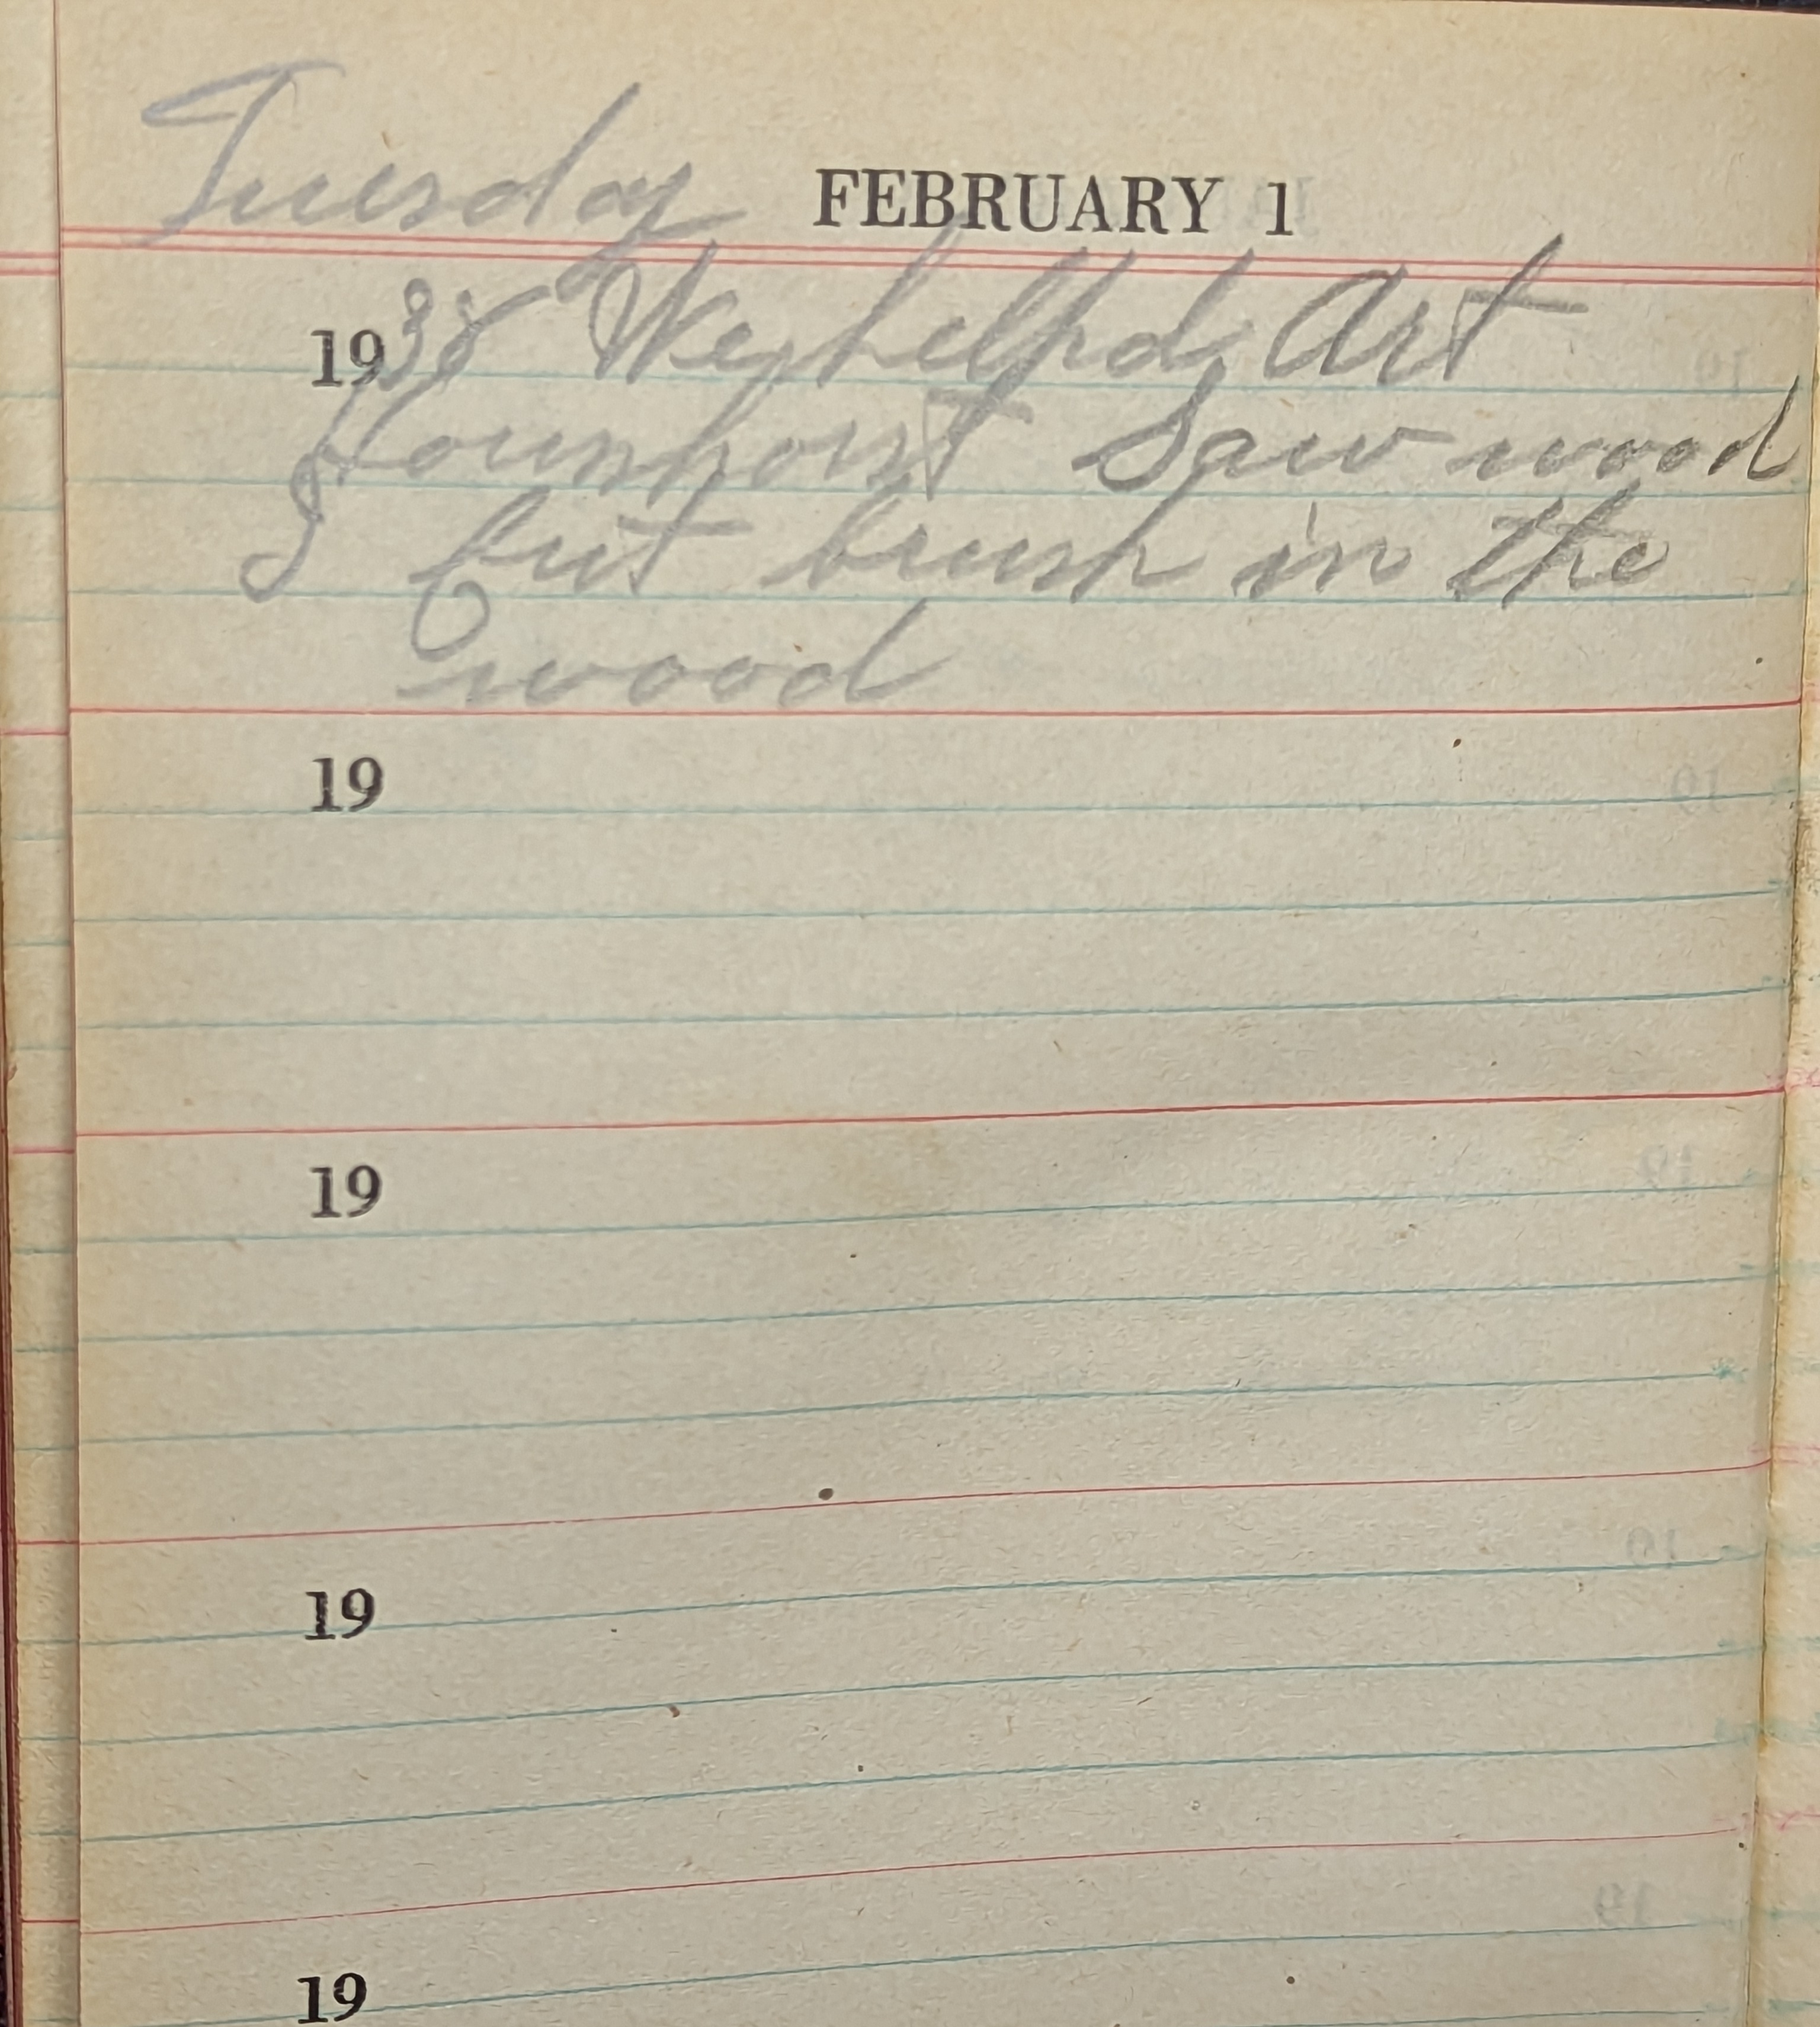 Tuesday FEBRUARY 1
1938 We helpd Art
Saw wood
I cut brush in the
wood
19
19
19
19